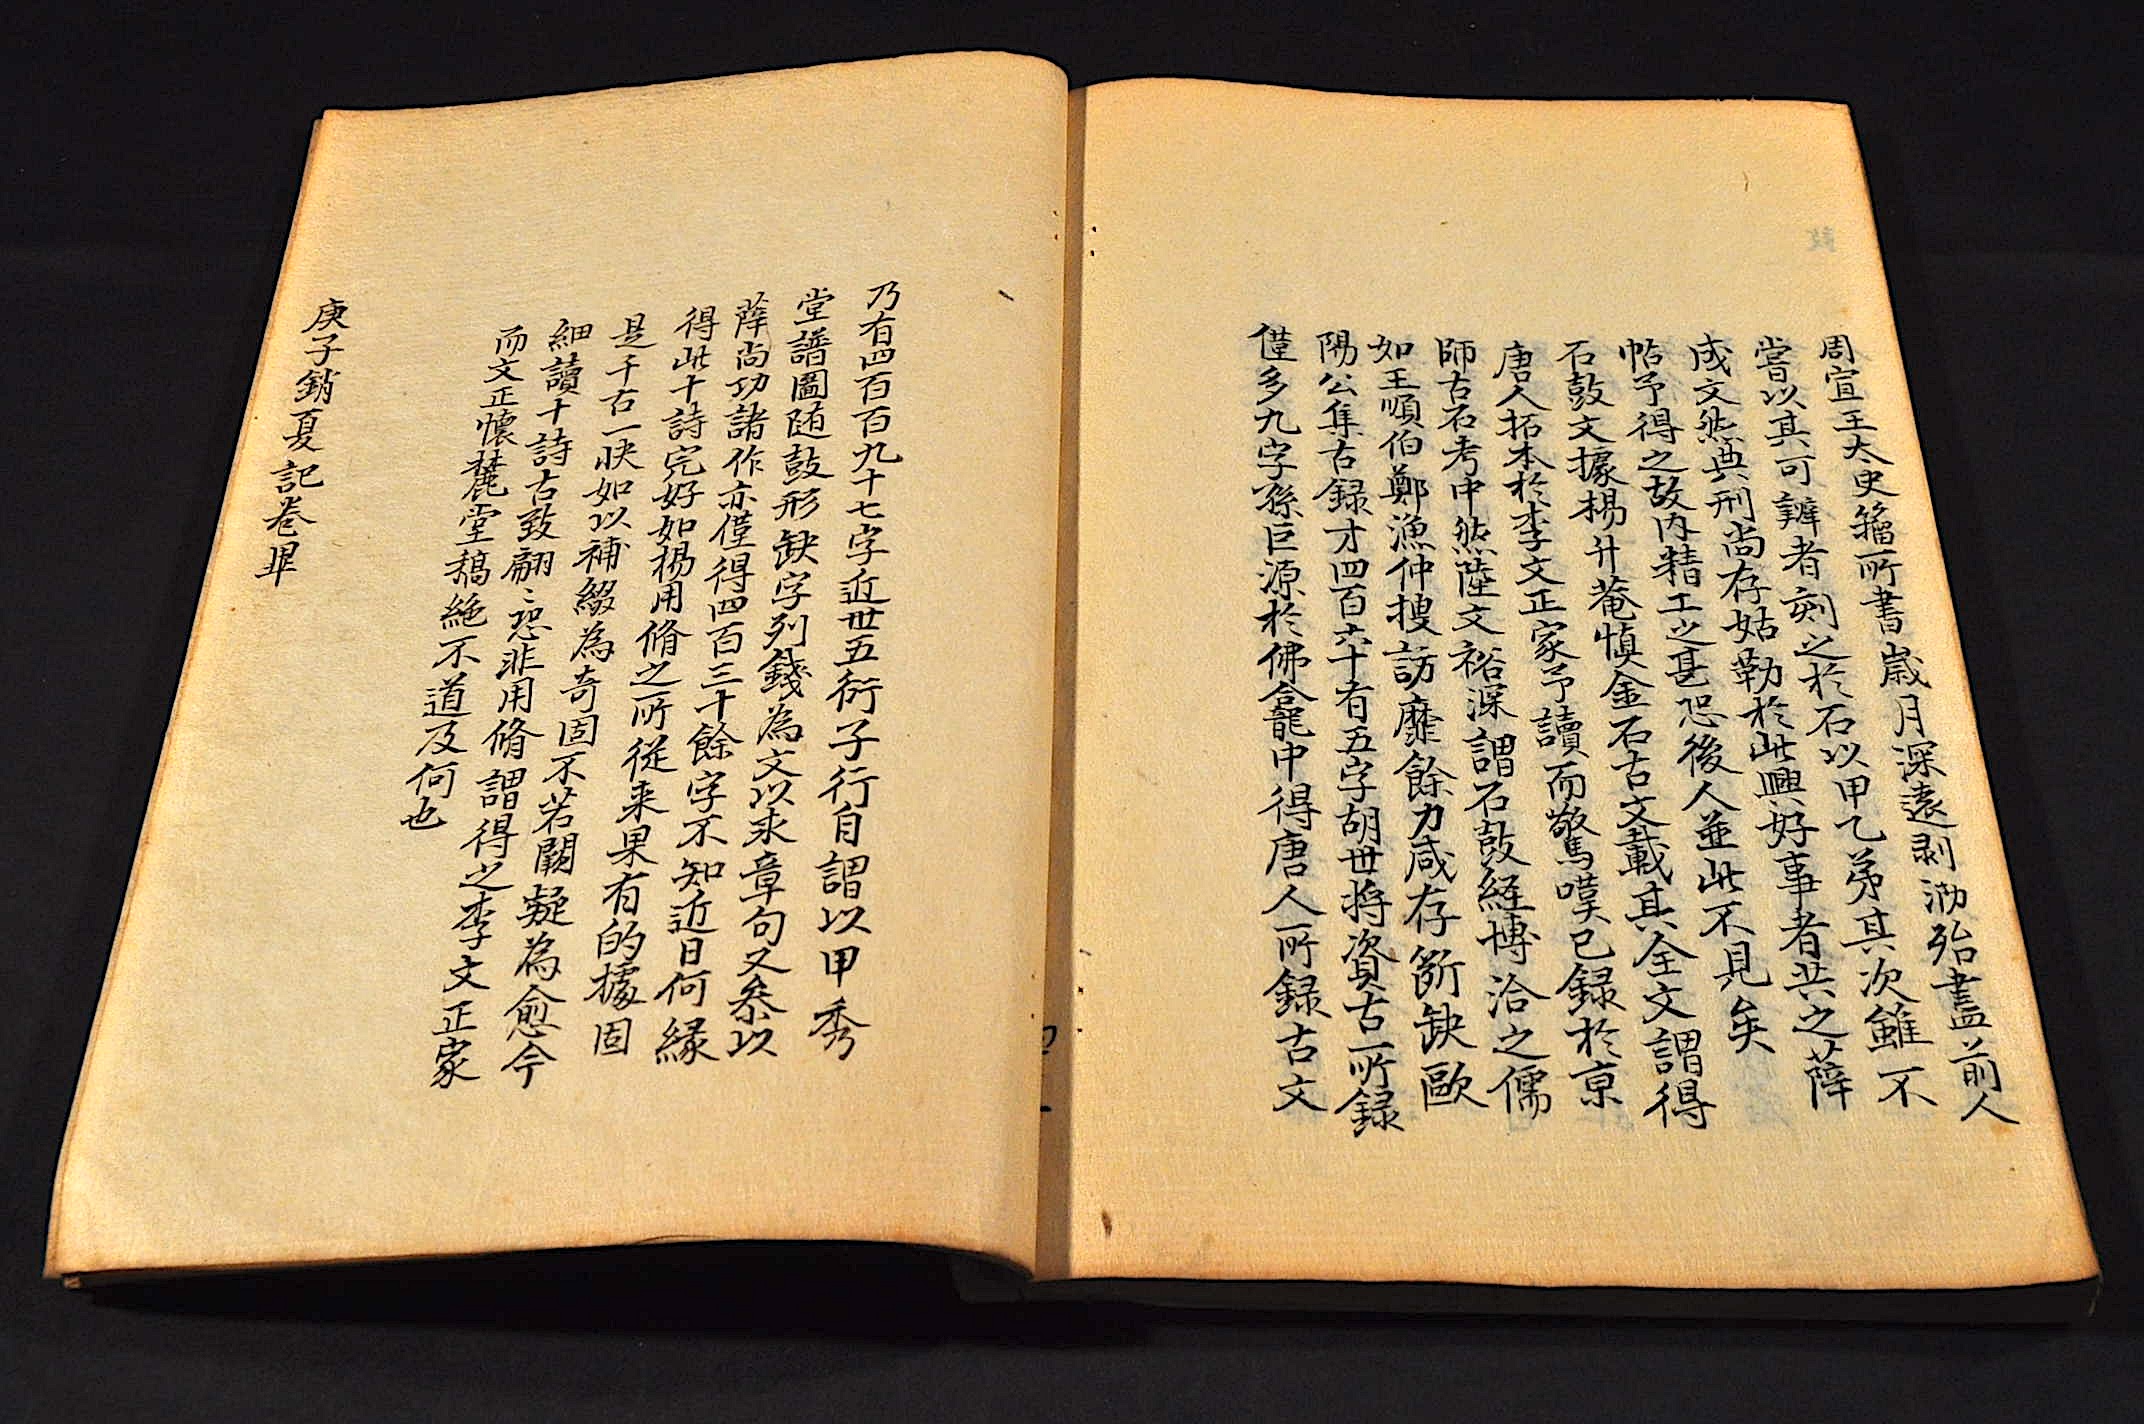 周宣王太史籀所書歲月深遠剥泐殆盡前人
嘗以其可辨者刻之於石以甲乙苐其次雖不
成文然典刑尚存姑勒於此興好事者共之薛
帖予得之故内精工之甚恐後人並此不見矣
石鼓文據楊升菴慎金石古文載其全文謂得
唐人拓本於李文正家予讀而驚嘆已録於京
師古石考中然陸文裕深謂石鼓經博洽之儒
如王順伯鄭漁仲搜訪靡餘力咸存斷缺歐
陽公集古録才四百六十有五字胡世将資古所録
僅多九字孫巨源於佛龕中得唐人所録古文
乃有四百百九十七字近世五衍子行自謂以甲秀
堂譜圖随鼓形缺字列錢為文以求章句又叅以
薛尚功諸作亦僅得四百三十餘字不知近日何縁
得此十詩完好如楊用脩之所從来果有的據固
是千古一快如以補綴為奇固不若闕疑為愈今
細讀十詩古致翩〻恐非用脩謂得之李文正家
而文正懷麓堂稿絶不道及何也
庚子銷夏記卷